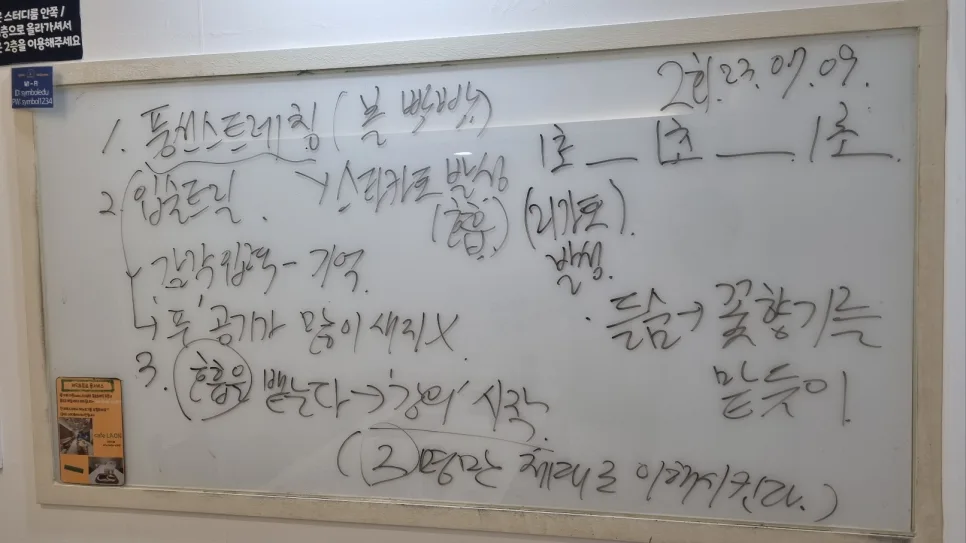 스터디룸 안쪽 /
층으로 올라가셔서
2층을 이용해주세요
ID symboledu
PW symbol1234
2회. 23. 07. 09.
1. 풍선스트레칭 (볼 빡빡)
1초 __ 1초 __ 1초.
2. 입술트릴. → 스타카토 발성
(호흡) (레가토).
발성.
감각 입력 - 기억.
↳ 푸' 공기가 많이 새지 X.
· 들숨 → 꽃향기를
맡듯이
3. (호흡을) 뱉는다 → '강의' 시작.
(③ 명만 제대로 이해시킨다.)
cafe LAON